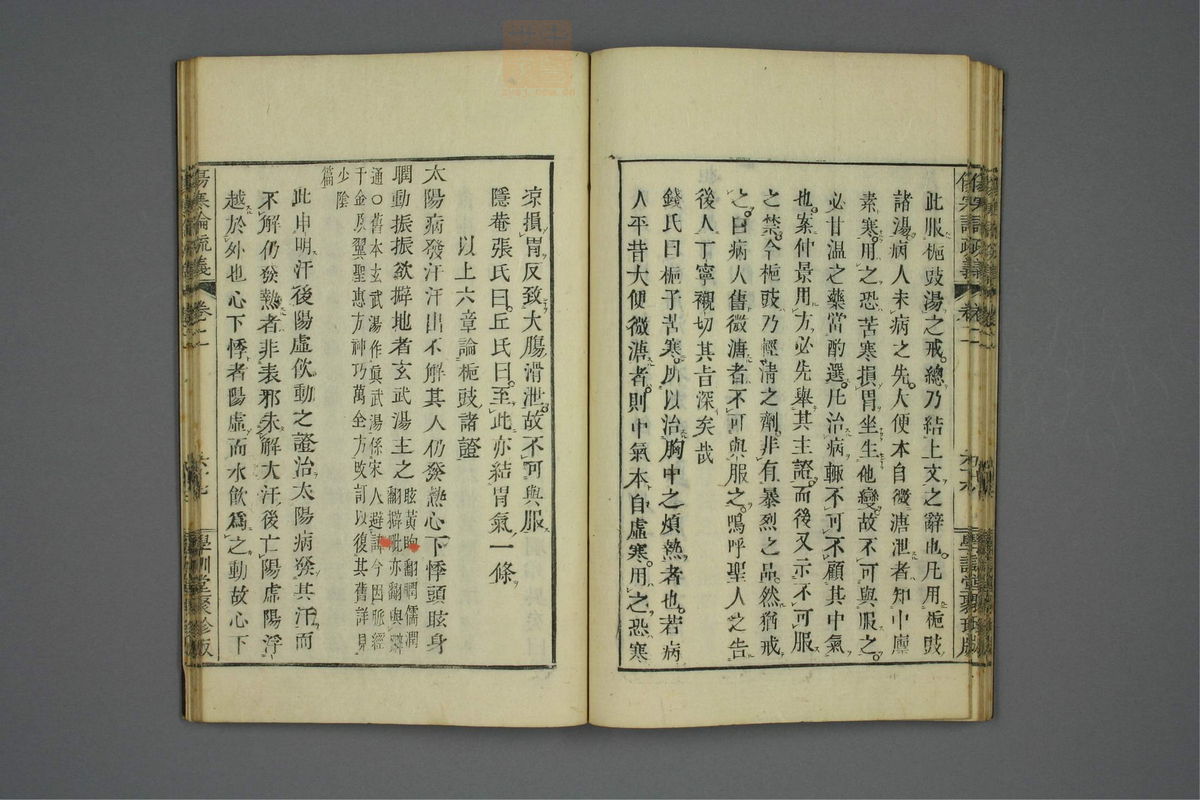 此服梔豉湯之戒總乃結上文之辭也凡用梔豉
諸湯病人未病之先大便本自微溏泄者知中廩
素寒用之恐苦寒損胃坐生他變故不可與服之
必甘溫之藥當酌選凡治病輙不可不顧其中氣
也案仲景用方必先舉其主證而後又示不可服
之禁今梔豉乃輕淸之劑非有暴烈之品然猶戒
之曰病人舊微溏者不可與服之嗚呼聖人之告
後人丁寧襯切其旨深矣哉
錢氏曰梔子苦寒所以治胸中之煩熱者也若病
人平昔大便微溏者則中氣本自虛寒用之恐寒
傷寒論疏義
卷二
學訓堂聚珍版
涼損胃反致大腸滑泄故不可與服
隱菴張氏曰丘氏曰至此亦結胃氣一條
以上六章論梔豉諸證
太陽病發汗汗出不解其人仍發熱心下悸頭眩身
瞤動振振欲擗地者玄武湯主之眩黃晌翻瞤儒潤翻擗毗亦翻與躃
通○舊本玄武湯作眞武湯係宋人避諱今因脈經
千金原翼聖惠方神巧萬全方改訂以復其舊詳見
少陰
篇
此申明汗後陽虛飮動之證治太陽病發其汗而
不解仍發熱者非表邪未解大汗後亡陽虛陽浮
越於外也心下悸者陽虛而水飮爲之動故心下
傷寒論疏義
卷二
六七
學訓堂聚珍版